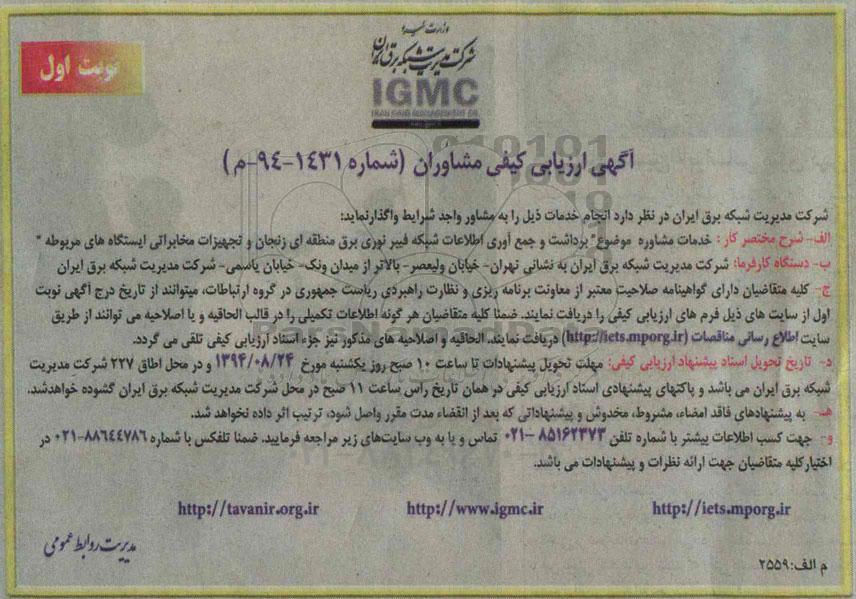 وزارت نیرو
شرکت مدیریت شبکه برق ایران
IGMC
IRAN GRID MANAGEMENT CO.
نوبت اول
آگهی ارزیابی کیفی مشاوران (شماره ۱۴۳۱-۹۴-م)
شرکت مدیریت شبکه برق ایران در نظر دارد انجام خدمات ذیل را به مشاور واجد شرایط واگذارنماید:
الف- شرح مختصر کار : خدمات مشاوره موضوع" برداشت و جمع آوری اطلاعات شبکه فیبر نوری برق منطقه ای زنجان و تجهیزات مخابراتی ایستگاه های مربوطه "
ب- دستگاه کارفرما: شرکت مدیریت شبکه برق ایران به نشانی تهران- خیابان ولیعصر- بالاتر از میدان ونک- خیابان یاسمی- شرکت مدیریت شبکه برق ایران
ج- کلیه متقاضیان دارای گواهینامه صلاحیت معتبر از معاونت برنامه ریزی و نظارت راهبردی ریاست جمهوری در گروه ارتباطات، میتوانند از تاریخ درج آگهی نوبت
اول از سایت های ذیل فرم های ارزیابی کیفی را دریافت نمایند. ضمنا کلیه متقاضیان هر گونه اطلاعات تکمیلی را در قالب الحاقیه و یا اصلاحیه می توانند از طریق
سایت اطلاع رسانی مناقصات (http://iets.mporg.ir) دریافت نمایند. الحاقیه و اصلاحیه های مذکور نیز جزء اسناد ارزیابی کیفی تلقی می گردد.
د- تاریخ تحویل اسناد پیشنهاد ارزیابی کیفی: مهلت تحویل پیشنهادات تا ساعت ۱۰ صبح روز یکشنبه مورخ ۱۳۹۴/۰۸/۲۴ و در محل اطاق ۲۲۷ شرکت مدیریت
شبکه برق ایران می باشد و پاکتهای پیشنهادی اسناد ارزیابی کیفی در همان تاریخ راس ساعت ۱۱ صبح در محل شرکت مدیریت شبکه برق ایران گشوده خواهدشد.
هـ- به پیشنهادهای فاقد امضاء، مشروط، مخدوش و پیشنهاداتی که بعد از انقضاء مدت مقرر واصل شود، ترتیب اثر داده نخواهد شد.
و- جهت کسب اطلاعات بیشتر با شماره تلفن ۸۵۱۶۲۳۷۳-۰۲۱ تماس و یا به وب سایت‌های زیر مراجعه فرمایید. ضمنا تلفکس با شماره ۸۸۶۴۴۷۸۶-۰۲۱ در
اختیار کلیه متقاضیان جهت ارائه نظرات و پیشنهادات می باشد.
http://iets.mporg.ir http://www.igmc.ir http://tavanir.org.ir
مدیریت روابط عمومی
م الف: ۲۵۵۹
ParsNamadData